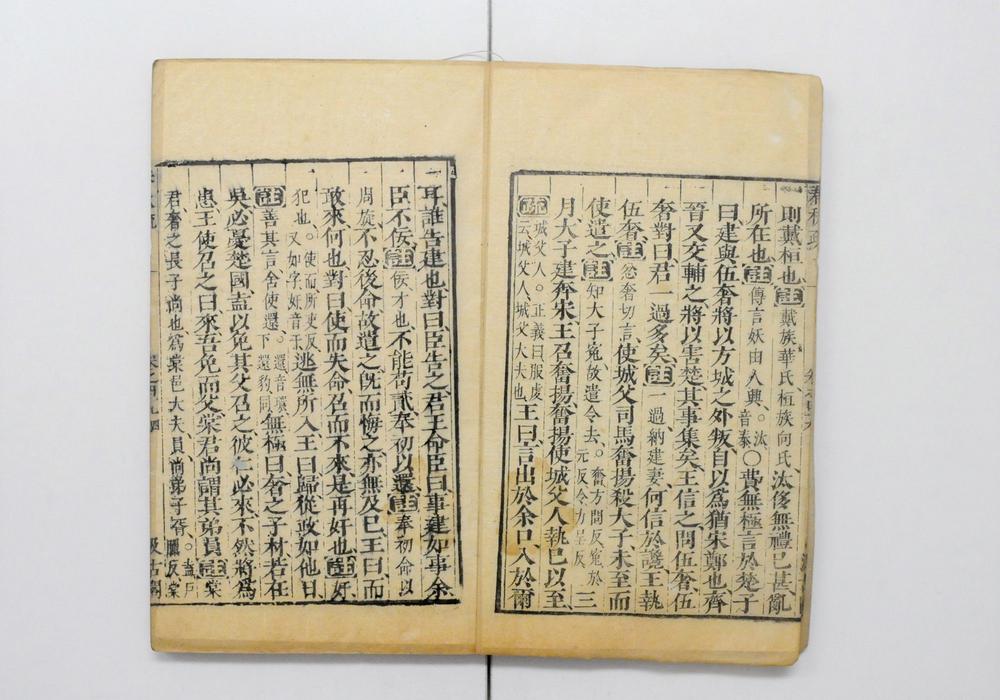 則戴桓也註戴族華氏桓族向氏汰侈無禮已甚亂
所在也註傳言妖由人興。汰音泰○費無極言於楚子
曰建與伍奢將以方城之外叛自以爲猶宋鄭也齊
晉又交輔之將以害楚其事集矣王信之問伍奢伍
奢對曰君一過多矣註一過納建妻何信於讒王執
伍奢註忿奢切言使城父司馬奮揚殺大子未至而
使遣之註知大子寃故遣令去。奮方問反寃於元反令力呈反三
月大子建奔宋王召奮揚奮揚使城父人執已以至
疏城父人。正義曰服虔云城父人城父大夫也王曰言出於余口入於爾
耳誰告建也對曰臣告之君王命臣曰事建如事余
臣不佞註佞才也不能苟貳奉初以還註奉初命以
周旋不忍後命故遣之旣而悔之亦無及已王曰而
敢來何也對曰使而失命召而不來是再奸也註奸
犯也。使而所吏反又如字奸音干逃無所入王曰歸從政如他日
註善其言舍使還。還音環下還豹同無極曰奢之子材若在
吳必憂楚國盍以免其父召之彼仁必來不然將爲
患王使召之曰來吾免而父棠君尚謂其弟員註棠
君奢之長子尚也爲棠邑大夫員尚弟子胥。盍戶臘反棠